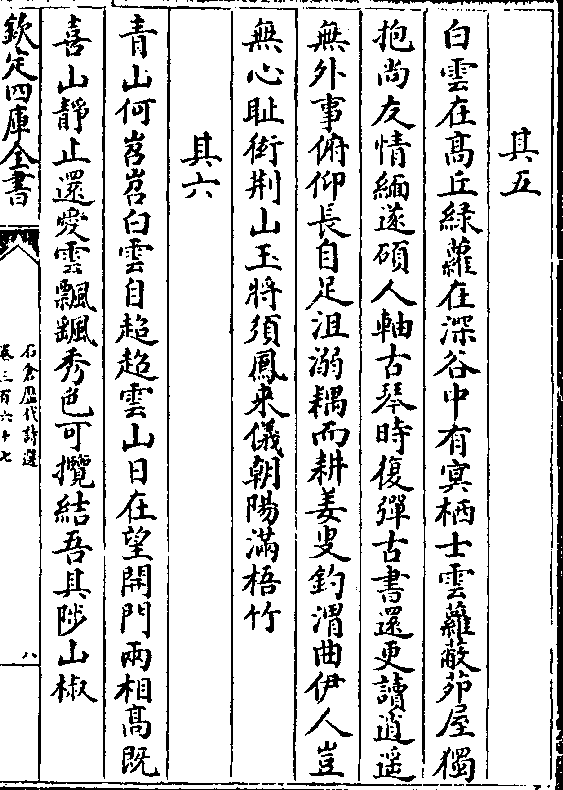 其五
白雲在髙丘綠蘿在深谷中有冥栖士雲蘿蔽茆屋獨
抱尚友情緬遂碩人軸古琴時復彈古書還更讀逍遥
無外事俯仰長自足沮溺耦而耕姜叟釣渭曲伊人豈
無心耻衒荆山玉將須鳳來儀朝陽滿梧竹
其六
青山何岧岧白雲自超超雲山日在望開門兩相髙既
喜山靜止還愛雲飄颻秀色可攬結吾其陟山椒
欽定四庫全書
石倉歴代詩選
卷三百六十七
八